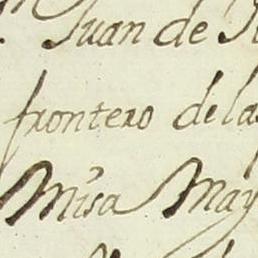 Juan de
frontero de las
Misa May